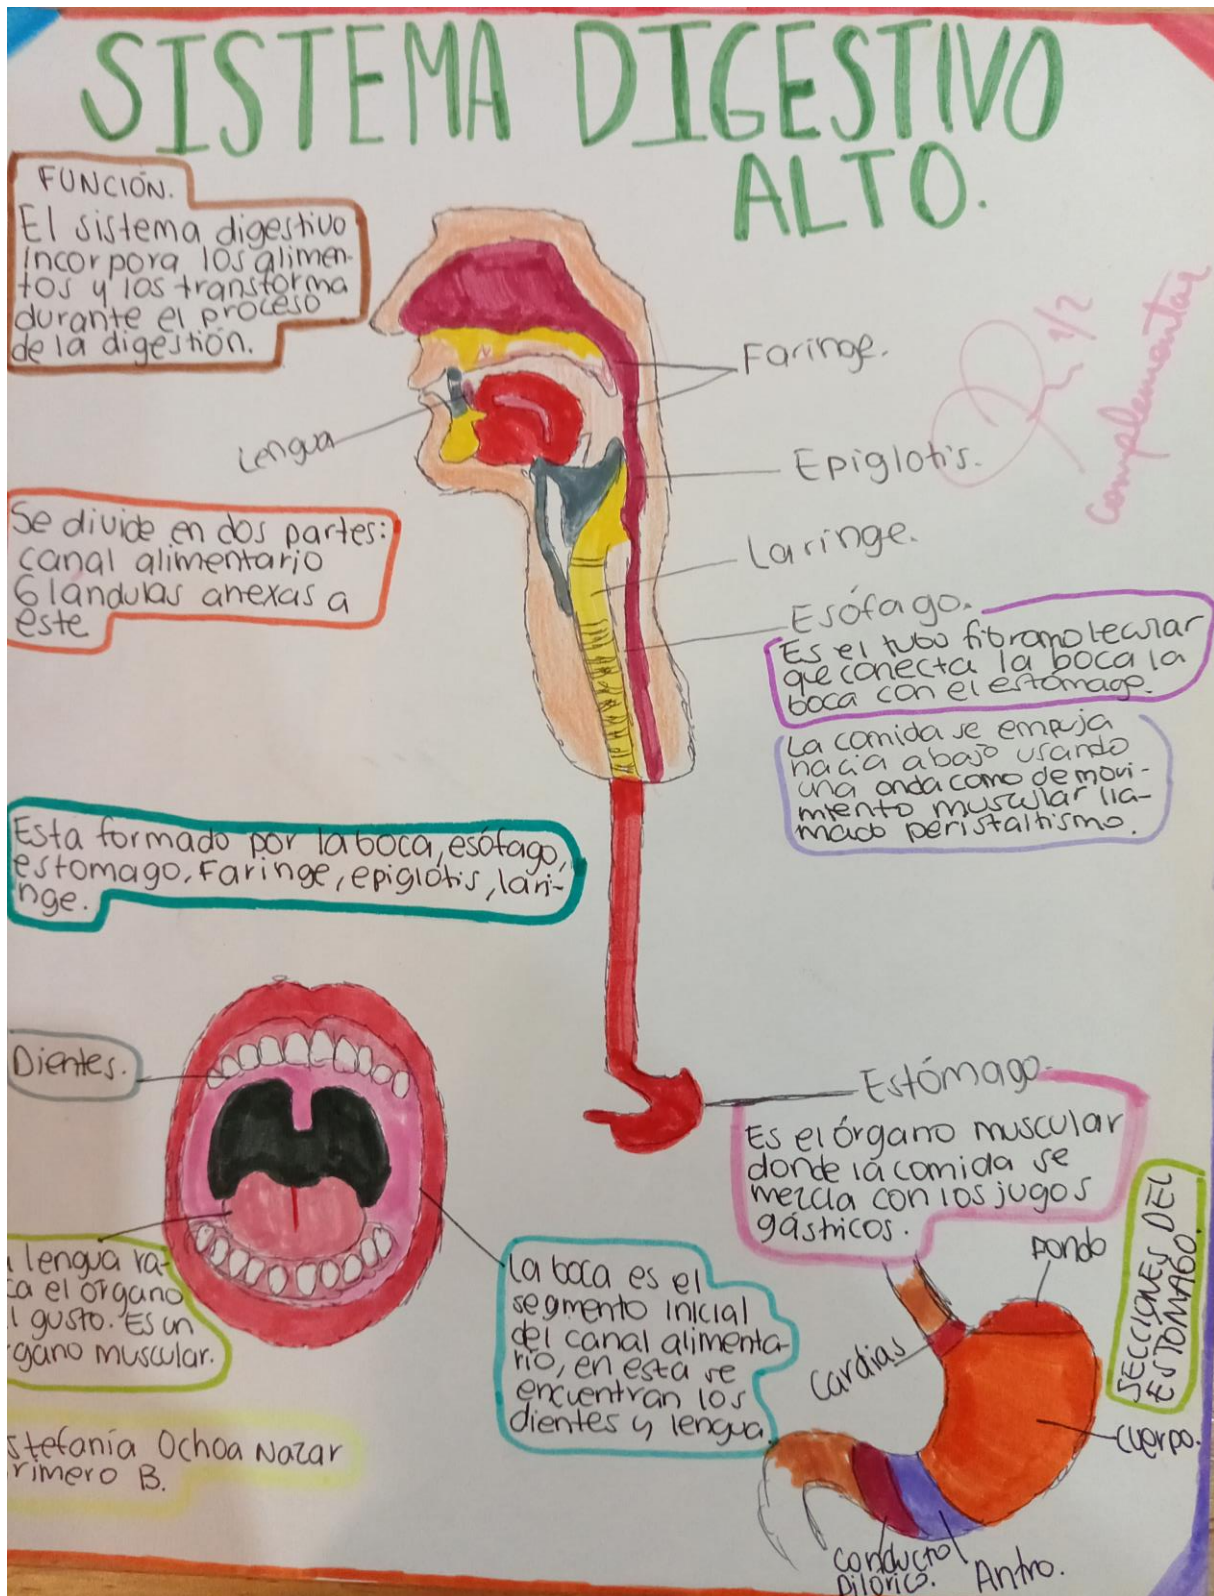 SISTEMA DIGESTIVO
ALTO.
FUNCIÓN.
El sistema digestivo
incorpora los alimen-
tos y los transforma
durante el proceso
de la digestión.
Faringe.
Lengua
Epiglotis.
1/2
complementar
Laringe.
Se divide en dos partes:
canal alimentario
Glándulas anexas a
este
Esófago.
Es el tubo fibramolecular
que conecta la boca la
boca con el estómago.
La comida se empuja
hacia abajo usando
una onda como de movi-
miento muscular lla-
mado peristaltismo.
Esta formado por la boca, esófago,
estomago, Faringe, epiglótis, lari-
nge.
Dientes.
Estómago.
Es el órgano muscular
donde la comida se
mezcla con los jugos
gástricos.
SECCIONES DEL
ESTÓMAGO.
lengua
el órgano
gusto. Es un
gano muscular.
La boca es el
segmento inicial
del canal alimenta-
rio, en esta se
encuentran los
dientes y lengua
Fondo
Cardias
Cuerpo.
Conducto
Pilórico.
Antro.
stefanía Ochoa Nazar
rimero B.